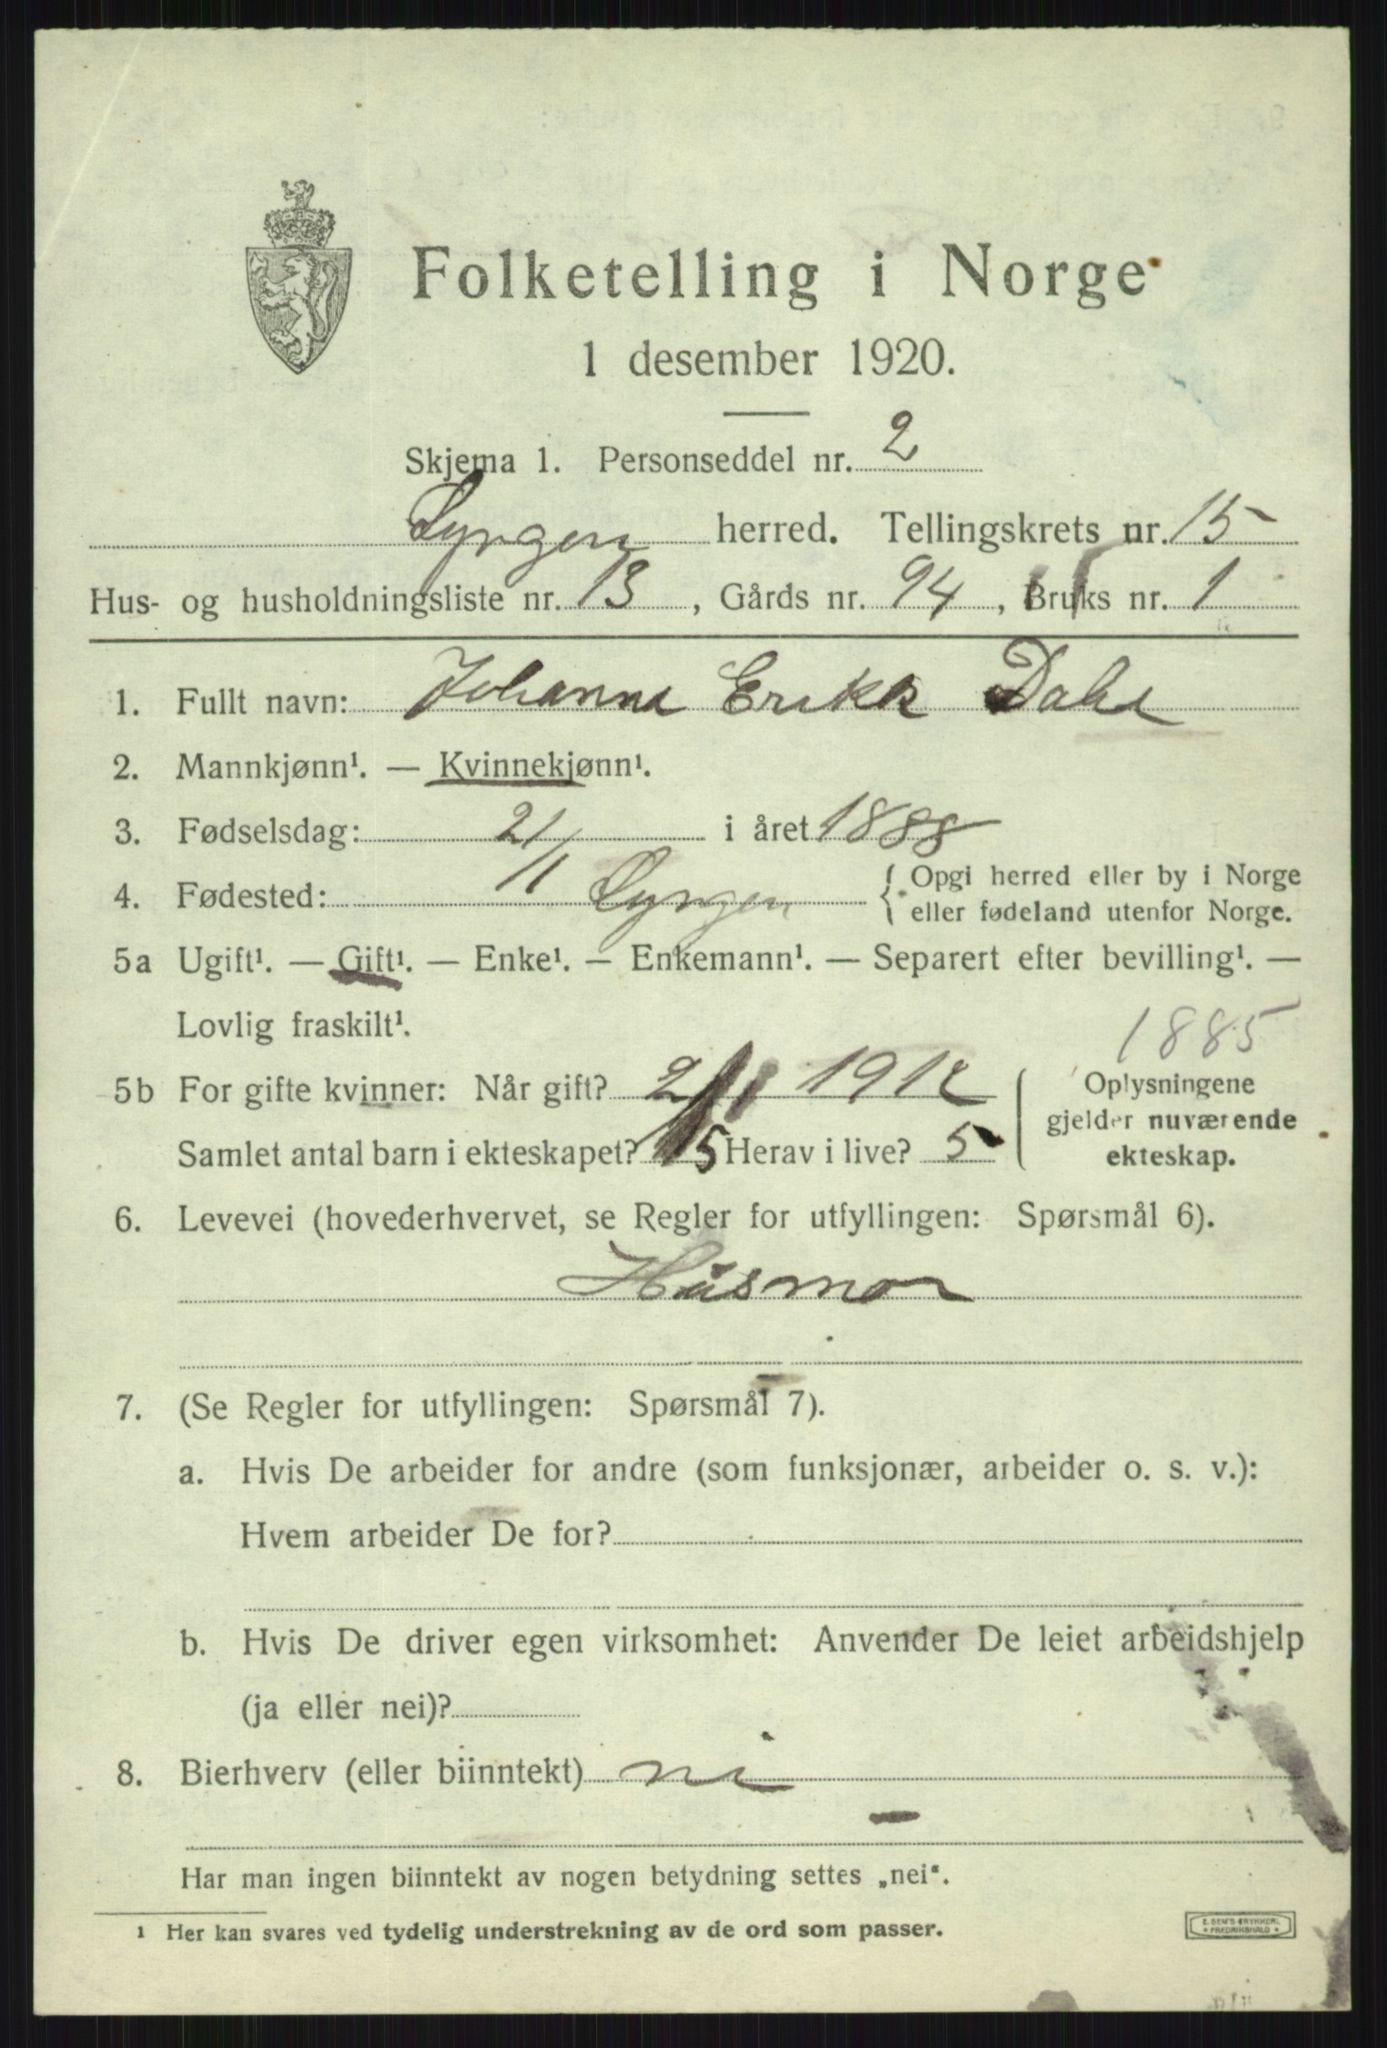 Folketelling i Norge
1 desember 1920.
Skjema 1. Personseddel nr. 2
Lyngen herred. Tellingskrets nr. 15
Hus- og husholdningsliste nr. 13, Gårds nr. 94, Bruks nr. 1
1. Fullt navn: Johanna Erikk Dahl
2. Mannkjønn¹. — Kvinnekjønn¹.
3. Fødselsdag: 21/1 i året 1888
4. Fødested: Lyngen { Opgi herred eller by i Norge
eller fødeland utenfor Norge.
5a Ugift¹. — Gift¹. — Enke¹. — Enkemann¹. — Separert efter bevilling¹. —
Lovlig fraskilt¹.
1885
5b For gifte kvinner: Når gift? 2/11 1912 ( Oplysningene
gjelder nuværende
Samlet antal barn i ekteskapet? 5 Herav i live? 5 ekteskap.
6. Levevei (hovederhvervet, se Regler for utfyllingen: Spørsmål 6).
Husmor
7. (Se Regler for utfyllingen: Spørsmål 7).
a. Hvis De arbeider for andre (som funksjonær, arbeider o. s. v.):
Hvem arbeider De for?
b. Hvis De driver egen virksomhet: Anvender De leiet arbeidshjelp
(ja eller nei)?
8. Bierhverv (eller biinntekt) ni
Har man ingen biinntekt av nogen betydning settes „nei“.
¹ Her kan svares ved tydelig understrekning av de ord som passer.
E. SEM'S TRYKKERI,
FREDRIKSHALD